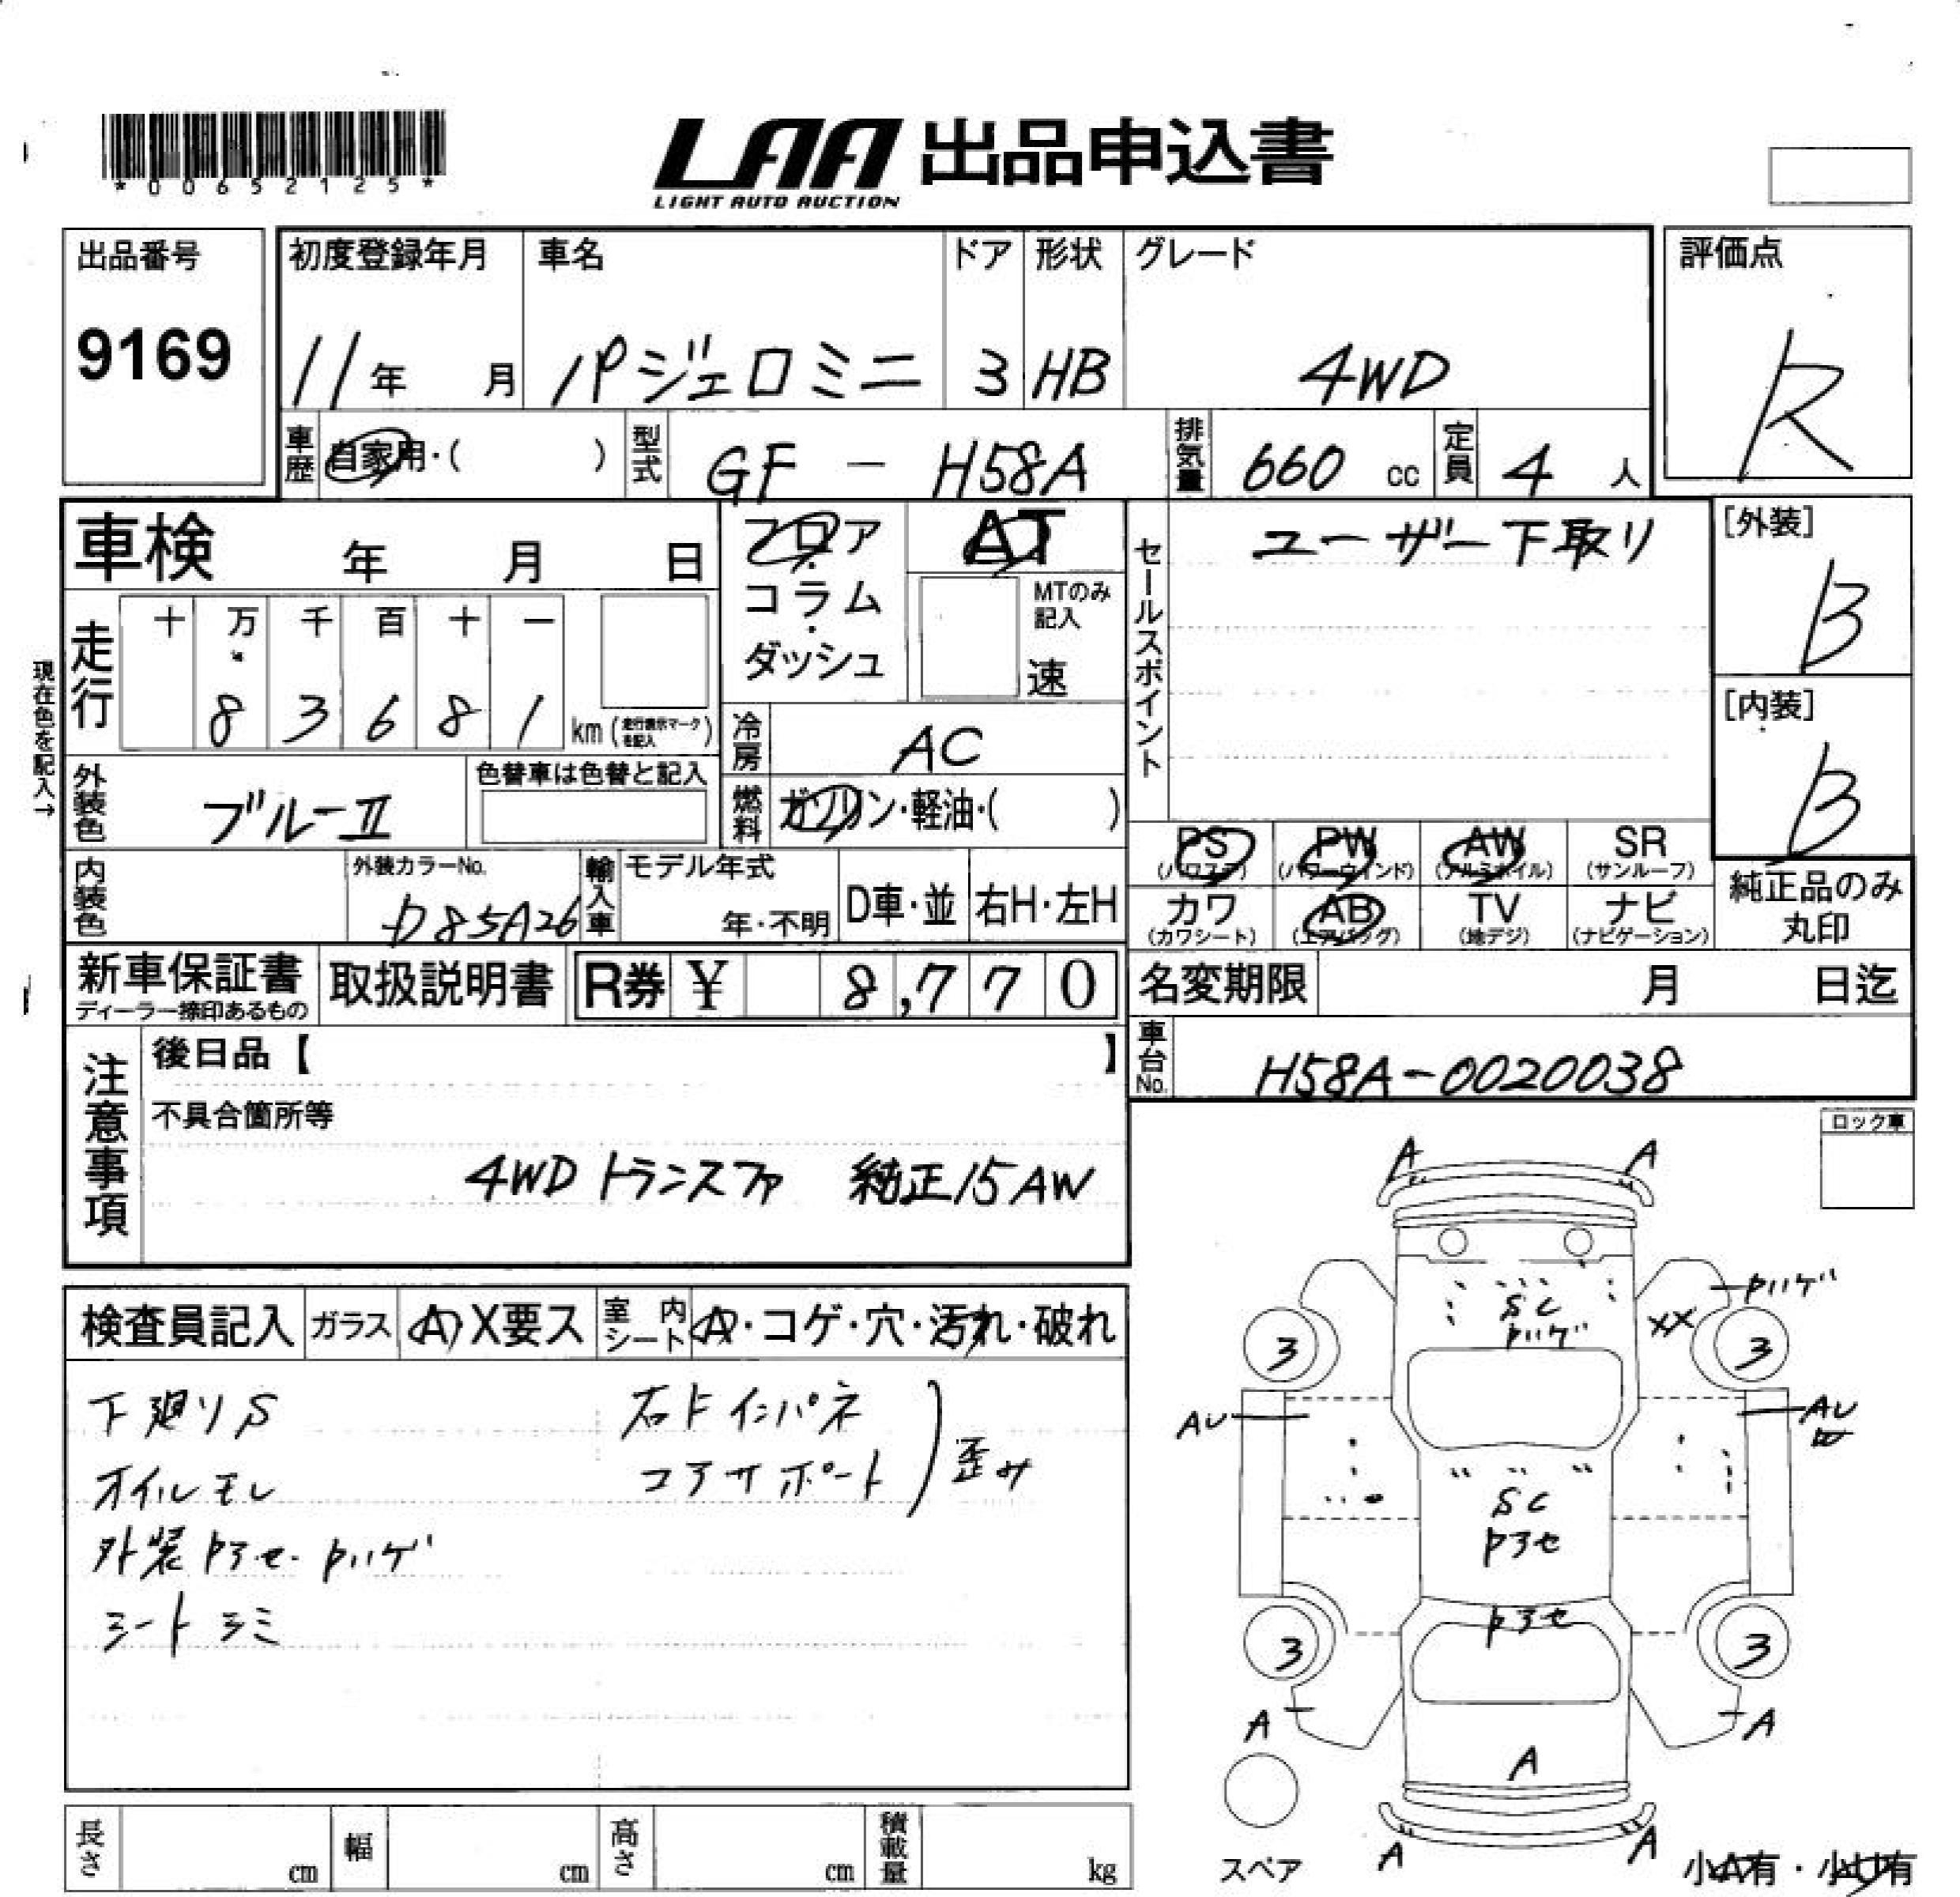 *00652125*
LAA 出品申込書
LIGHT AUTO AUCTION
出品番号
9169
初度登録年月
11年 月
車名
パジェロミニ
ドア
3
形状
HB
グレード
4WD
評価点
R
車歴 自家用・( )
型式 GF - H58A
排気量 660 cc
定員 4 人
車検 年 月 日
フロア・コラム・ダッシュ
AT
MTのみ記入
速
セールスポイント
ユーザー下取リ
[外装]
B
[内装]
B
現在色を記入→
走行
十 万 千 百 十 一
8 3 6 8 1 km (走行表示マークを記入)
冷房 AC
外装色 ブルーII
色替車は色替と記入
燃料 ガソリン・軽油・( )
PS (パワステ)
PW (パワーウインド)
AW (アルミホイル)
SR (サンルーフ)
カワ (カワシート)
AB (エアバッグ)
TV (地デジ)
ナビ (ナビゲーション)
純正品のみ丸印
内装色
外装カラーNo.
D85A26
輸入車
モデル年式
年・不明
D車・並
右H・左H
新車保証書
ディーラー捺印あるもの
取扱説明書
R券 ¥ 8,770
名変期限 月 日迄
車台No. H58A-0020038
注意事項
後日品【 】
不具合箇所等
4WD トランスファ 純正15AW
ロック車
検査員記入
ガラス A X要ス
室内シート A・コゲ・穴・汚れ・破れ
下廻りS
オイルモレ
外装Pアセ・Pハゲ
シートシミ
右Fインパネ
コアサポート
歪み
A A
SC
Pハゲ
XX
Pハゲ
3 3
AU
AU
W
SC
Pアセ
Pアセ
3 3
A A
A
A A
スペア
小A有・小U有
長さ cm
幅 cm
高さ cm
積載量 kg